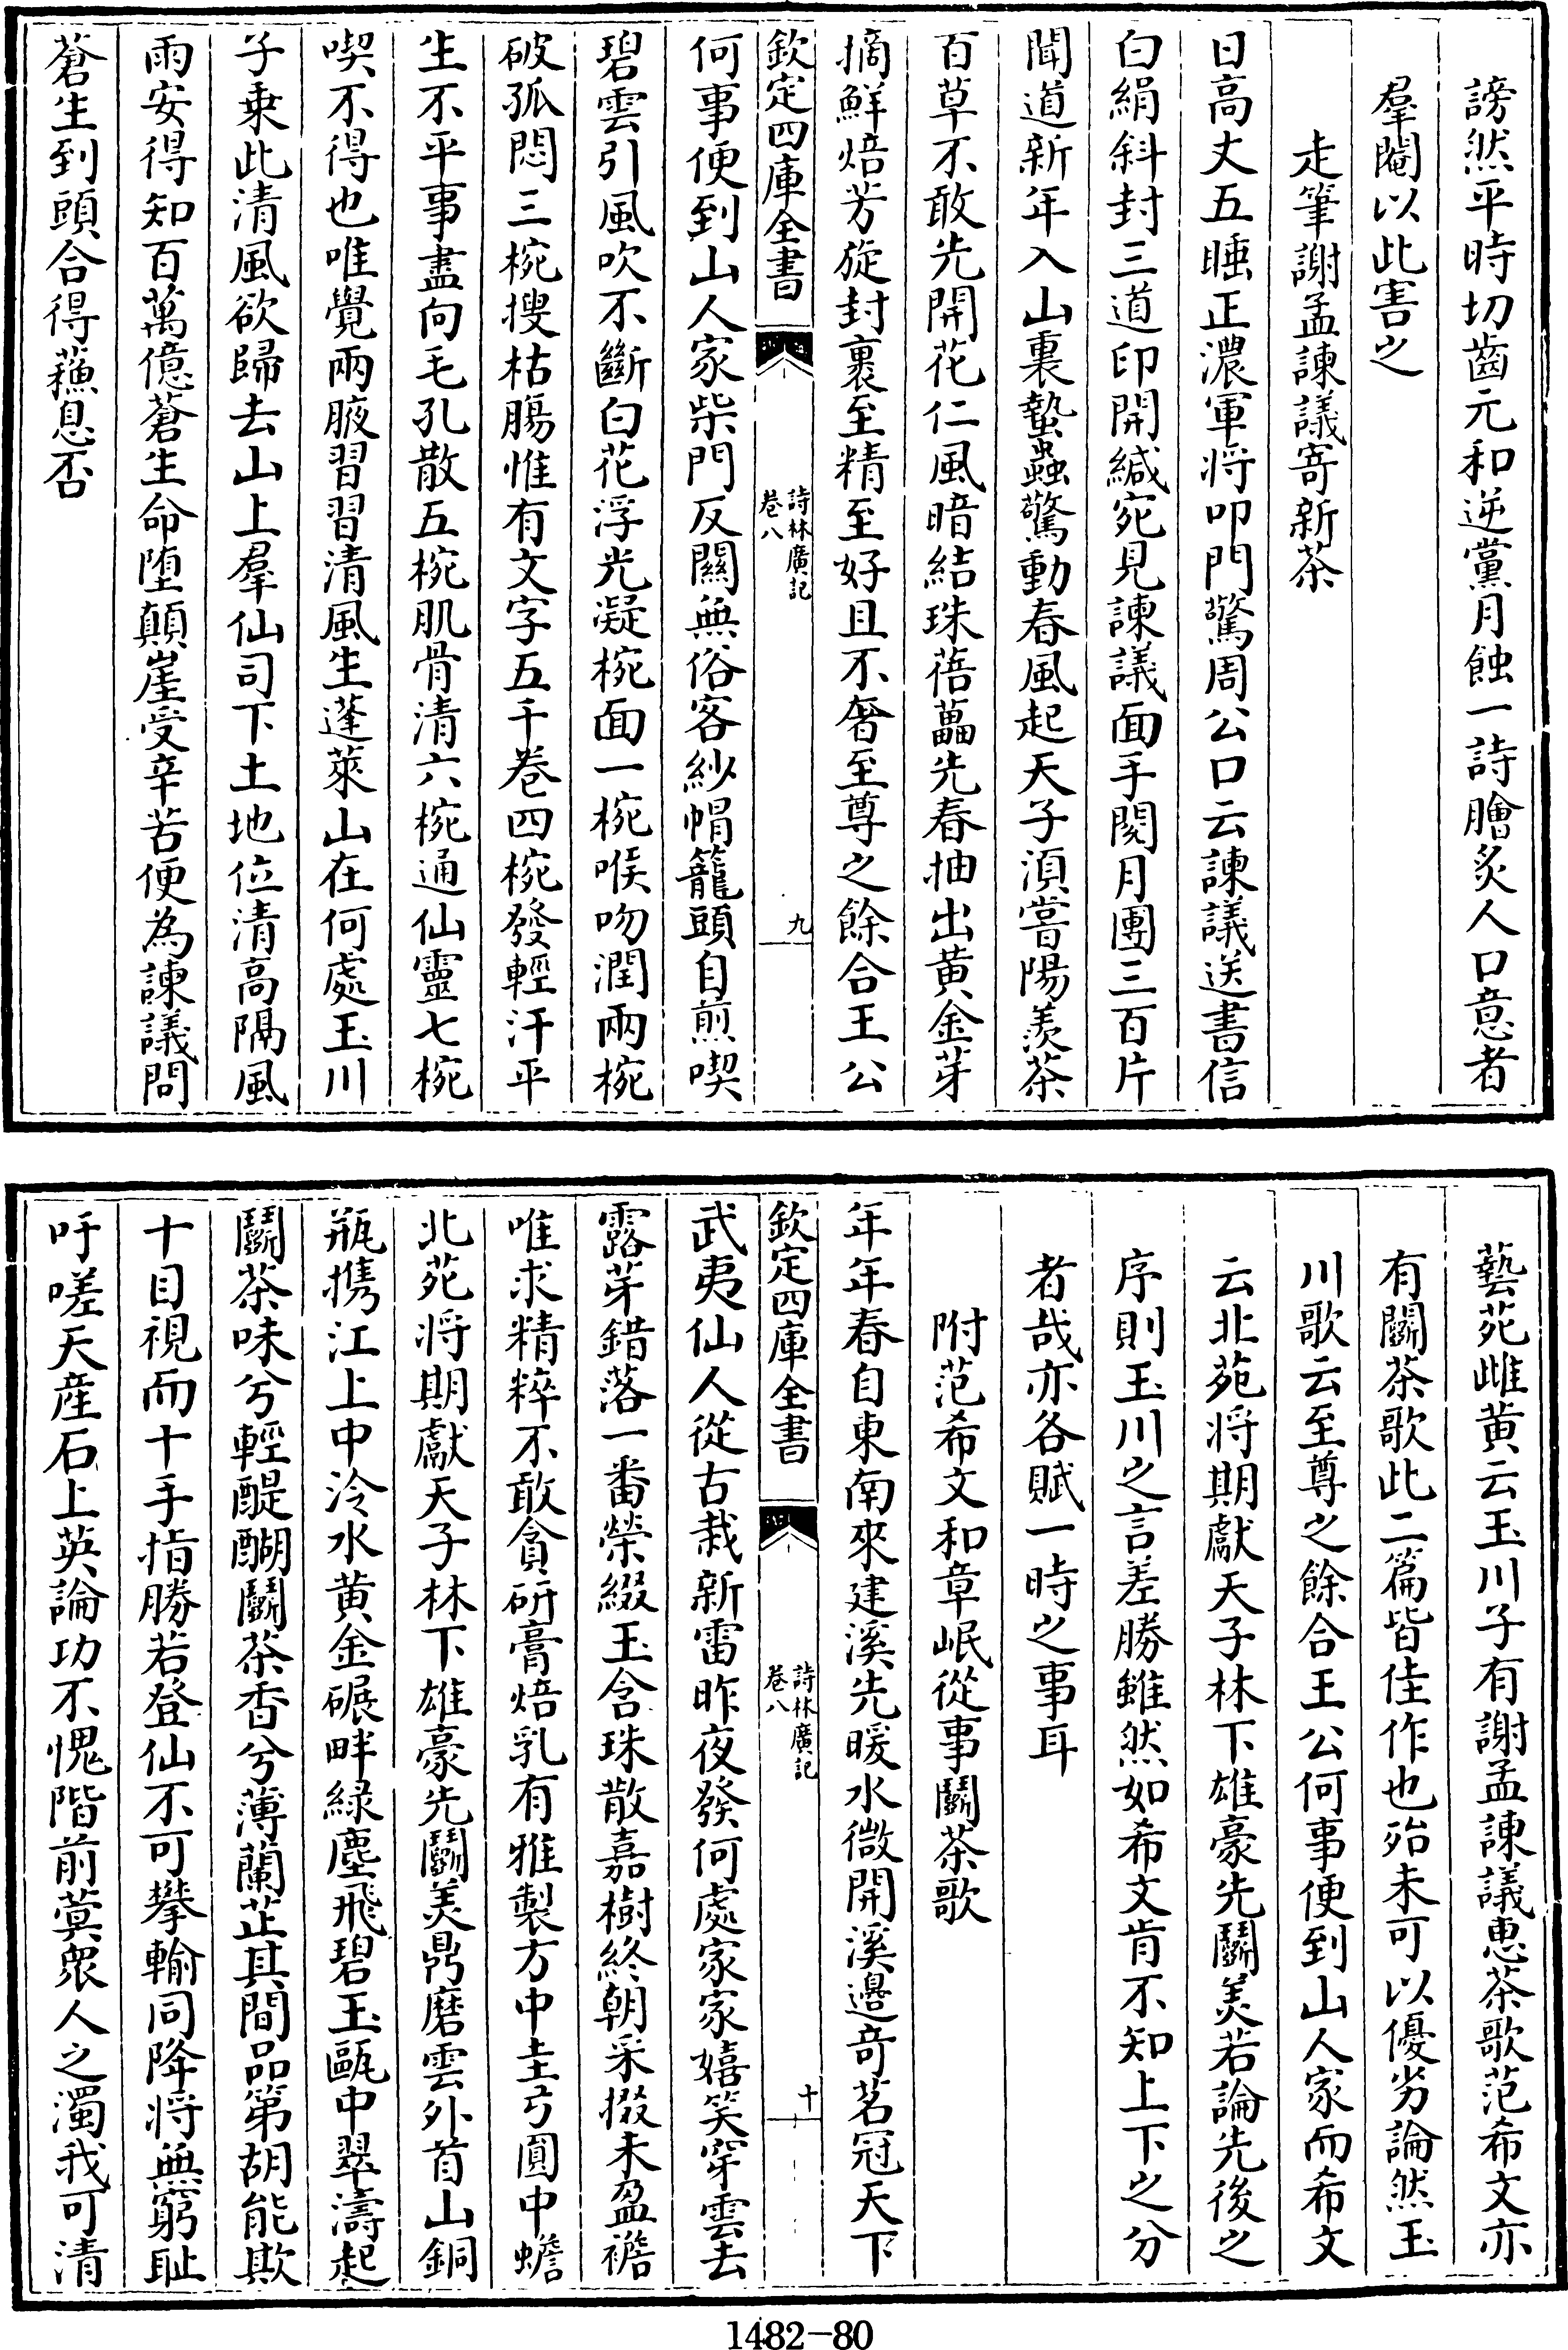 謗然平時切齒元和逆黨月蝕一詩膾炙人口意者
羣閹以此害之
走筆謝孟諫議寄新茶
日高丈五睡正濃軍將叩門驚周公口云諫議送書信
白絹斜封三道印開緘宛見諫議面手閱月團三百片
聞道新年入山裏蟄蟲驚動春風起天子湏嘗陽羨茶
百草不敢先開花仁風暗結珠蓓蕾先春抽出黃金芽
摘鮮焙芳旋封裹至精至好且不奢至尊之餘合王公
欽定四庫全書
詩林廣記
卷八
九
何事便到山人家柴門反關無俗客紗帽籠頭自煎喫
碧雲引風吹不斷白花浮光凝椀面一椀喉吻潤兩椀
破孤悶三椀搜枯腸惟有文字五千卷四椀發輕汗平
生不平事盡向毛孔散五椀肌骨清六椀通仙靈七椀
喫不得也唯覺兩腋習習清風生蓬萊山在何處玉川
子乗此清風欲歸去山上羣仙司下土地位清高隔風
雨安得知百萬億蒼生命墮顛崖受辛苦便為諫議問
蒼生到頭合得蘓息否
藝苑雌黃云玉川子有謝孟諫議惠茶歌范希文亦
有鬭茶歌此二篇皆佳作也殆未可以優劣論然玉
川歌云至尊之餘合王公何事便到山人家而希文
云北苑將期獻天子林下雄豪先鬭美若論先後之
序則玉川之言差勝雖然如希文肯不知上下之分
者哉亦各賦一時之事耳
附范希文和章岷從事鬭茶歌
年年春自東南來建溪先暖水微開溪邊竒茗冠天下
欽定四庫全書
詩林廣記
卷八
十
武夷仙人從古栽新雷昨夜發何處家家嬉笑穿雲去
露芽錯落一番榮綴玉含珠散嘉樹終朝采掇未盈襜
唯求精粹不敢貪研膏焙乳有雅製方中圭兮圓中蟾
北苑將期獻天子林下雄豪先鬭美鼎磨雲外首山銅
瓶攜江上中泠水黃金碾畔綠塵飛碧玉甌中翠濤起
鬭茶味兮輕醍醐鬭茶香兮薄蘭芷其間品第胡能欺
十目視而十手指勝若登仙不可攀輸同降將無窮恥
吁嗟天產石上英論功不愧階前蓂衆人之濁我可清
1482-80